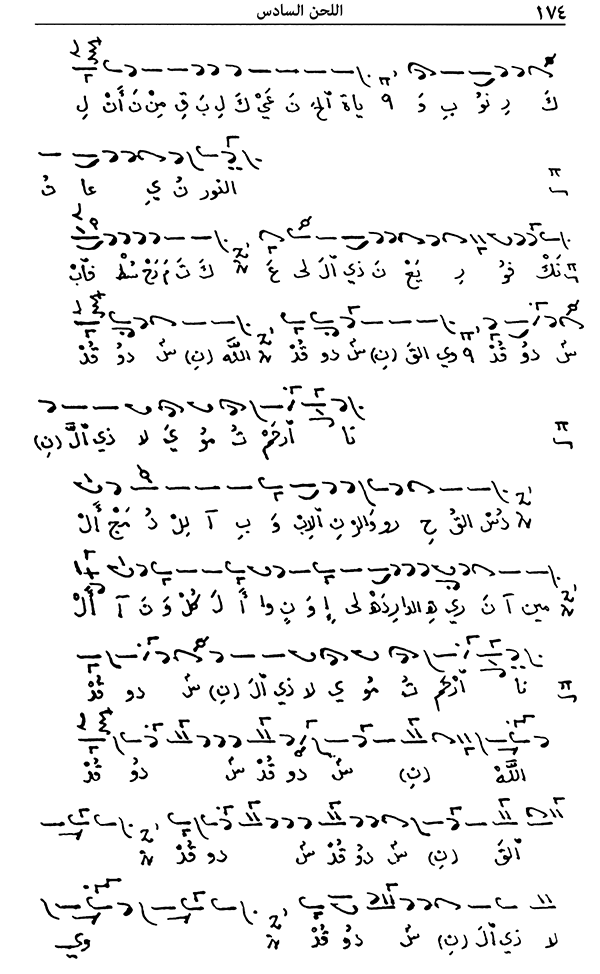 ١٧٤ اللحن السادس
كَ رِ نوُ بِ وَ ٩ ياةِ الحَ نَ عَيْ كَ لِ بَ قِ مِنْ نَ أَنْ لِ
النور تُ يِ عا تُ
نَكْ فو رِ يَغْ نَ ذي اَلْ لى عَ كَ تَ مَ رَحْ سُطْ فَابْ
سٌ دوُ قُدْ ٩ وي القَ (نِ) سٌ دو قُدْ اللّه (نِ) سٌ دوُ قُدْ
نا اْرحَمْ تُ موُ يَ لا ذي اَلْ (نِ)
دُسْ القُ حِ رو وَالرْ نِ اَلاِبْ وَ بِ آ لِلْ دُ مَجْ أَلْ
مين آ نَ ري هِ الدا رِ دَهْ لى إِ وَ نٍ وا أَ لَ كُلْ وَ نَ آ أَلْ
نا اْرحَمْ تُ موُ ي لا ذي اَلْ (نِ) سٌ دو قُدْ
اللّه (نِ) سٌ دو قُدْ سٌ دوُ قُدْ
اَلقَ (نِ) سٌ دوُ قُدْ سٌ دو قُدْ
لا ذي اَلْ (نِ) سٌ دوُ قُدْ وي